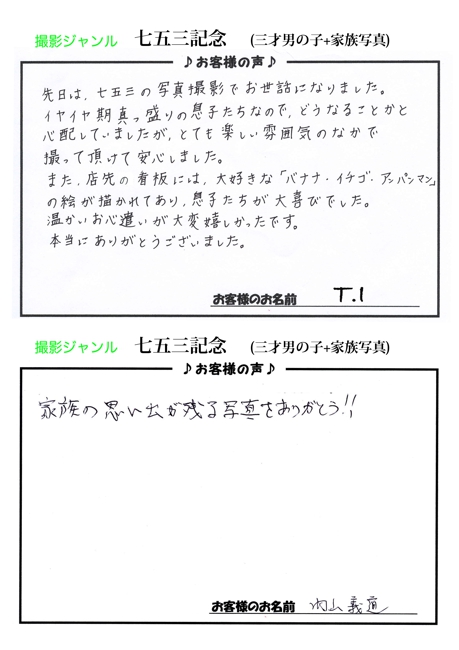 撮影ジャンル 七五三記念 (三才男の子+家族写真)
♪お客様の声♪
先日は、七五三の写真撮影でお世話になりました。
イヤイヤ期真っ盛りの息子たちなので、どうなることかと
心配していましたが、とても楽しい雰囲気のなかで
撮って頂けて安心しました。
また、店先の看板には、大好きな「バナナ・イチゴ・アンパンマン」
の絵が描かれてあり、息子たちが大喜びでした。
温かいお心遣いが大変嬉しかったです。
本当にありがとうございました。
お客様のお名前 T.I
撮影ジャンル 七五三記念 (三才男の子+家族写真)
♪お客様の声♪
家族の思い出が残る写真をありがとう!!
お客様のお名前 内山義道